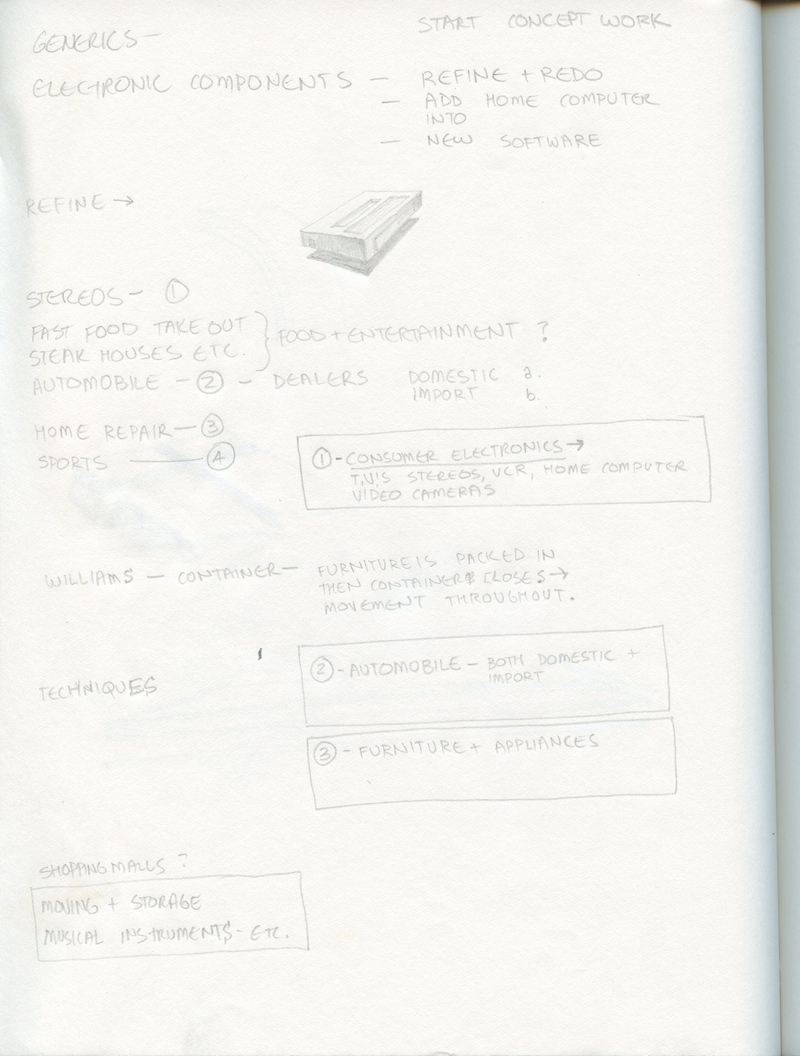 START CONCEPT WORK
GENERICS-
ELECTRONIC COMPONENTS - REFINE + REDO
- ADD HOME COMPUTER
INTO
- NEW SOFTWARE
REFINE →
STEREOS- ①
FAST FOOD TAKE OUT
STEAK HOUSES ETC. } FOOD + ENTERTAINMENT ?
AUTOMOBILE - ② - DEALERS DOMESTIC a.
IMPORT b.
HOME REPAIR - ③
SPORTS - ④
① - CONSUMER ELECTRONICS →
T.V.'S STEREOS, VCR, HOME COMPUTER
VIDEO CAMERAS
WILLIAMS - CONTAINER - FURNITURE IS PACKED IN
THEN CONTAINER CLOSES →
MOVEMENT THROUGHOUT.
TECHNIQUES
② - AUTOMOBILE - BOTH DOMESTIC +
IMPORT
③ - FURNITURE + APPLIANCES
SHOPPING MALLS ?
MOVING + STORAGE
MUSICAL INSTRUMENTS - ETC.